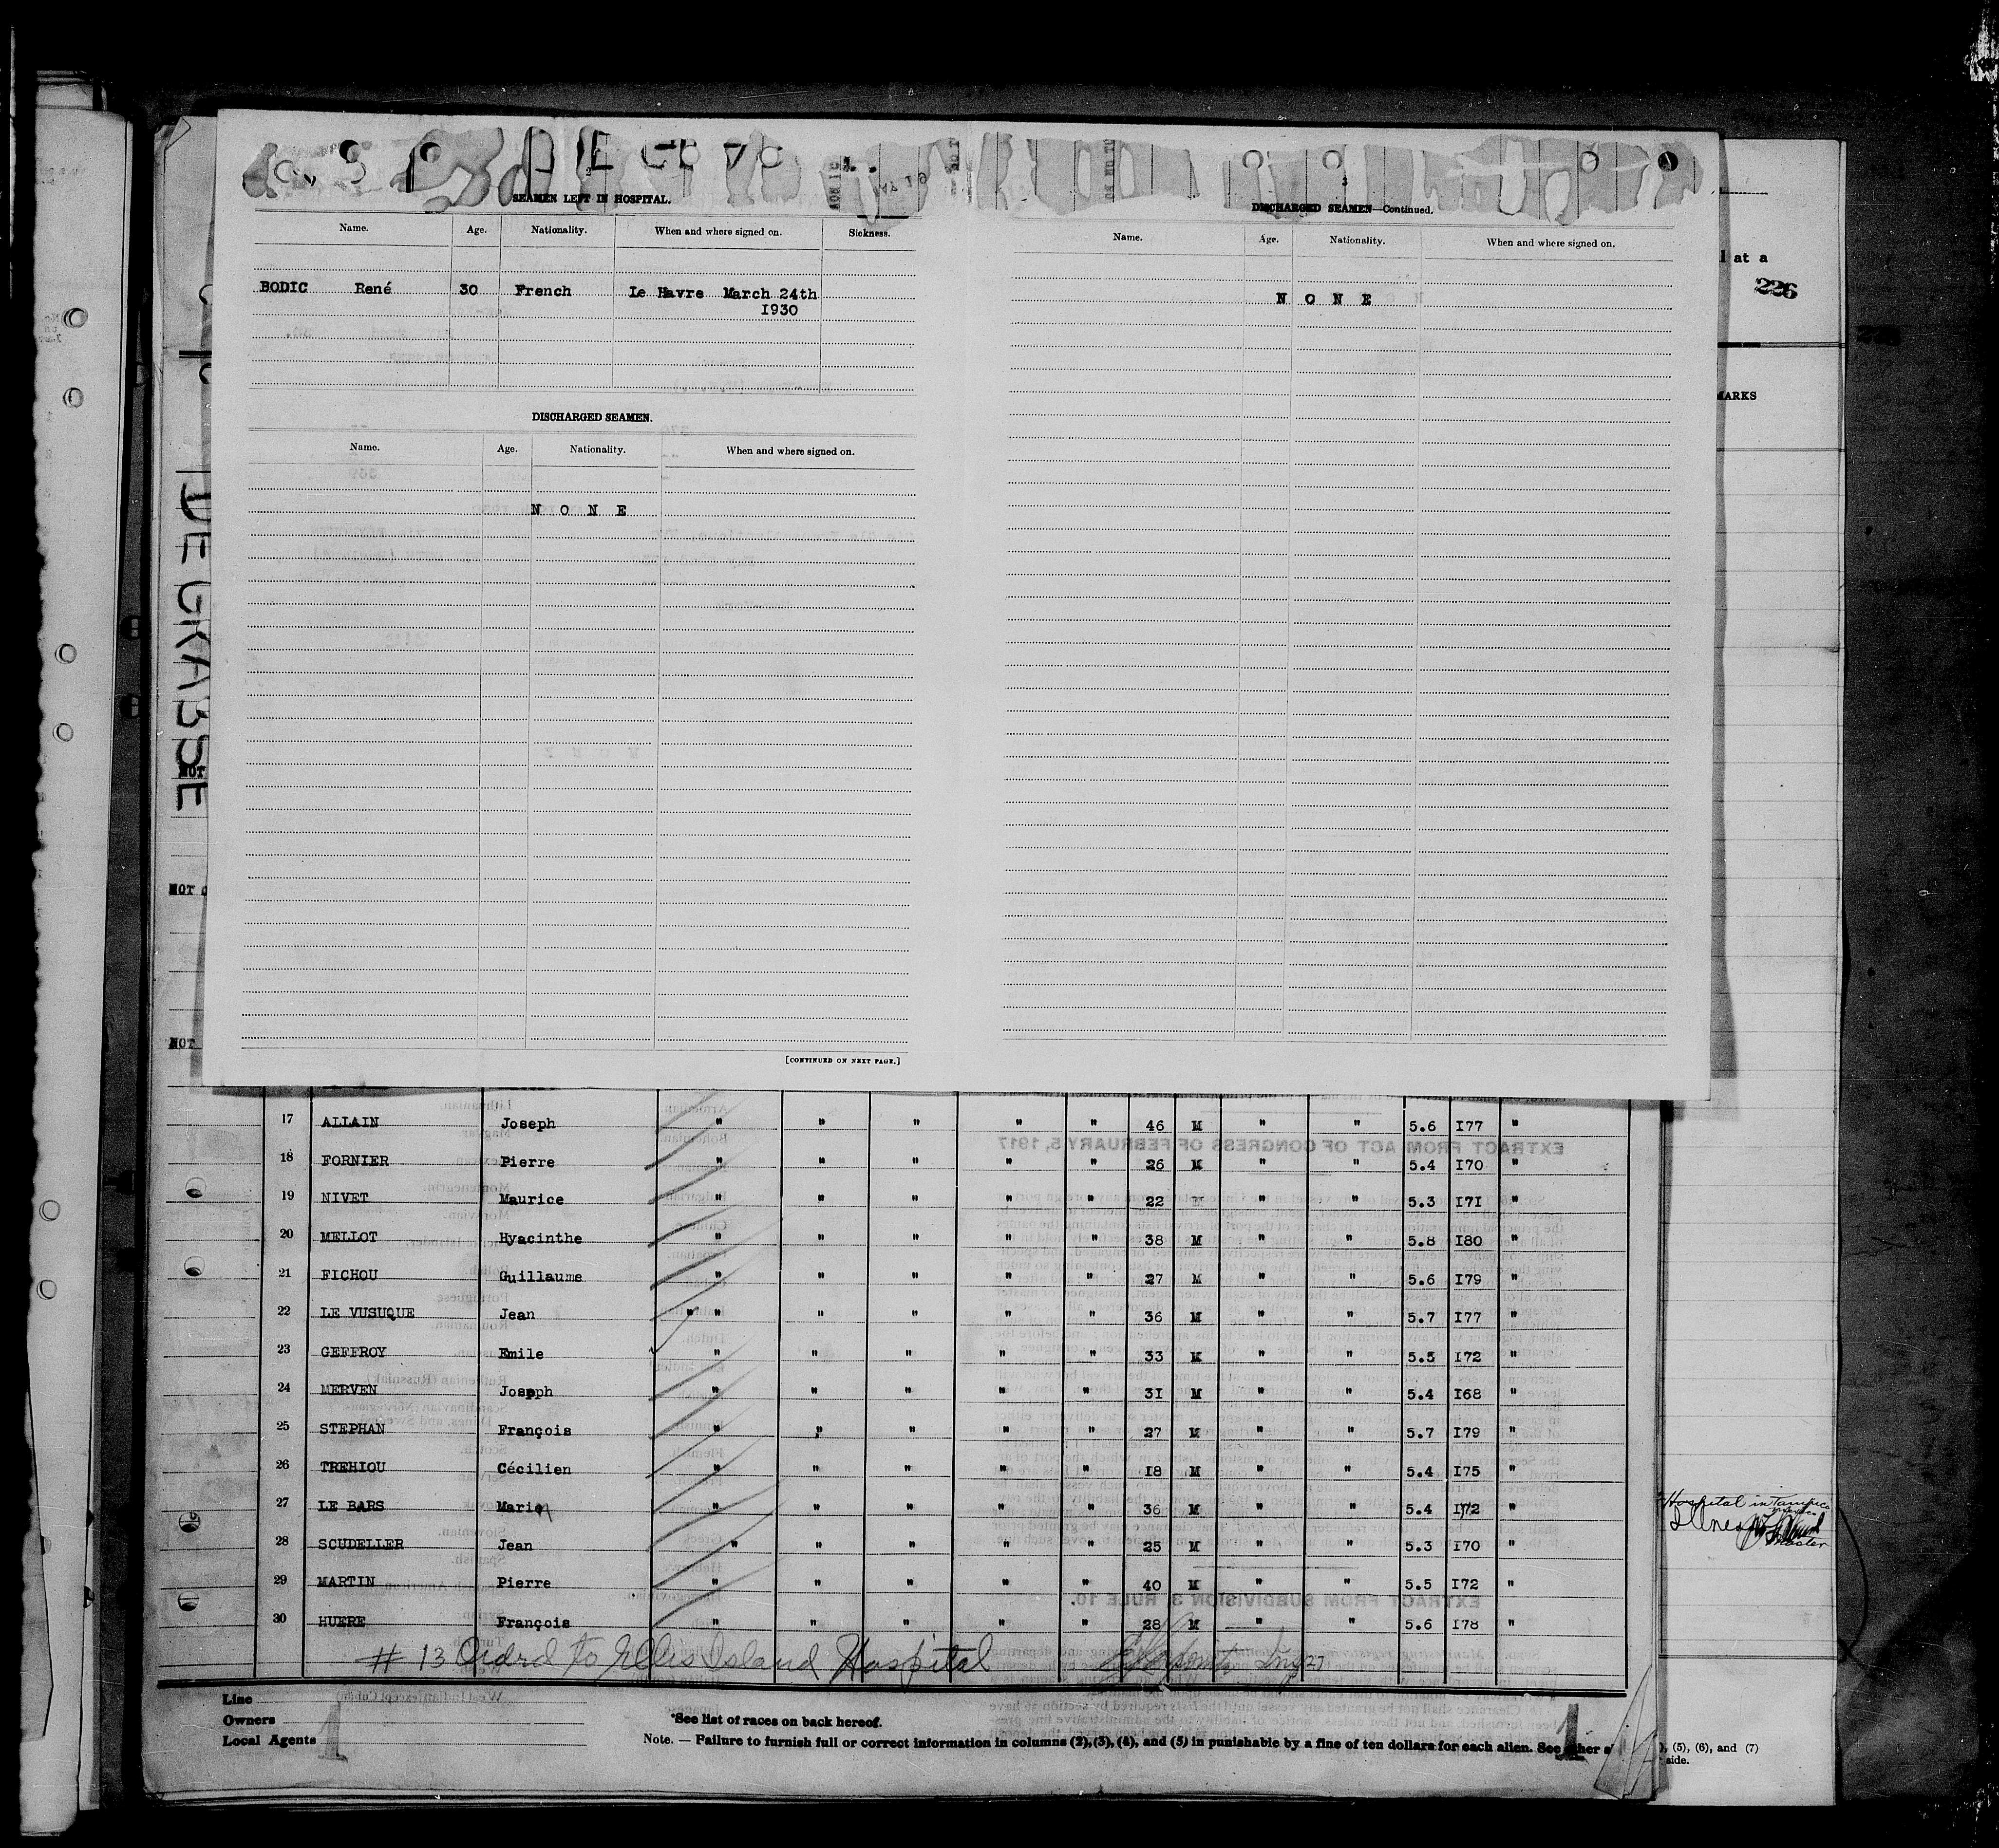 SEAMEN LEFT IN HOSPITAL.
Name. Age. Nationality. When and where signed on. Sickness.
BODIC René 30 French Le Havre March 24th
I930
DISCHARGED SEAMEN.
Name. Age. Nationality. When and where signed on.
N O N E
[CONTINUED ON NEXT PAGE.]
3
DISCHARGED SEAMEN—Continued.
Name. Age. Nationality. When and where signed on.
N O N E
at a
226
DE GRASSE
NOT
NOT
NOT
17 ALLAIN Joseph " " " " " 46 M " " 5.6 I77 "
18 FORNIER Pierre " " " " " 26 M " " 5.4 I70 "
19 NIVET Maurice " " " " " 22 M " " 5.3 I71 "
20 MELLOT Hyacinthe " " " " " 38 M " " 5.8 I80 "
21 FICHOU Guillaume " " " " " 27 M " " 5.6 I79 "
22 LE VUSUQUE Jean " " " " " 36 M " " 5.7 I77 "
23 GEFFROY Emile " " " " " 33 M " " 5.5 I72 "
24 MERVEN Joseph " " " " " 31 M " " 5.4 I68 "
25 STEPHAN François " " " " " 27 M " " 5.7 I79 "
26 TREHIOU Cécilien " " " " " I8 M " " 5.4 I75 "
27 LE BARS Marie " " " " " 36 M " " 5.4 I72 "
28 SCUDELLER Jean " " " " " 25 M " " 5.3 I70 "
29 MARTIN Pierre " " " " " 40 M " " 5.5 I72 "
30 HUERE François " " " " " 28 M " " 5.6 I78 "
# 13 Ordrd to Ellis Island Hospital
Line
Owners
Local Agents
*See list of races on back hereof.
Note. — Failure to furnish full or correct information in columns (2), (3), (4), and (5) in punishable by a fine of ten dollars for each alien. See
(5), (6), and (7)
side.
Hospital in Tampico
Illness
Master